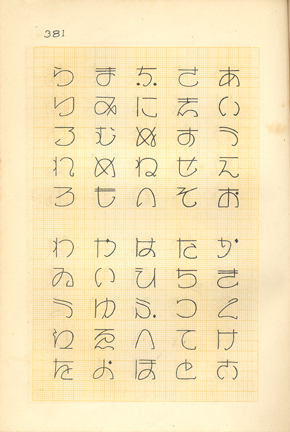 381
あいうえお かきくけこ
さしすせそ たちつてと
なにぬねの はひふへほ
まみむめも やいゆえよ
らりるれろ わゐうゑを